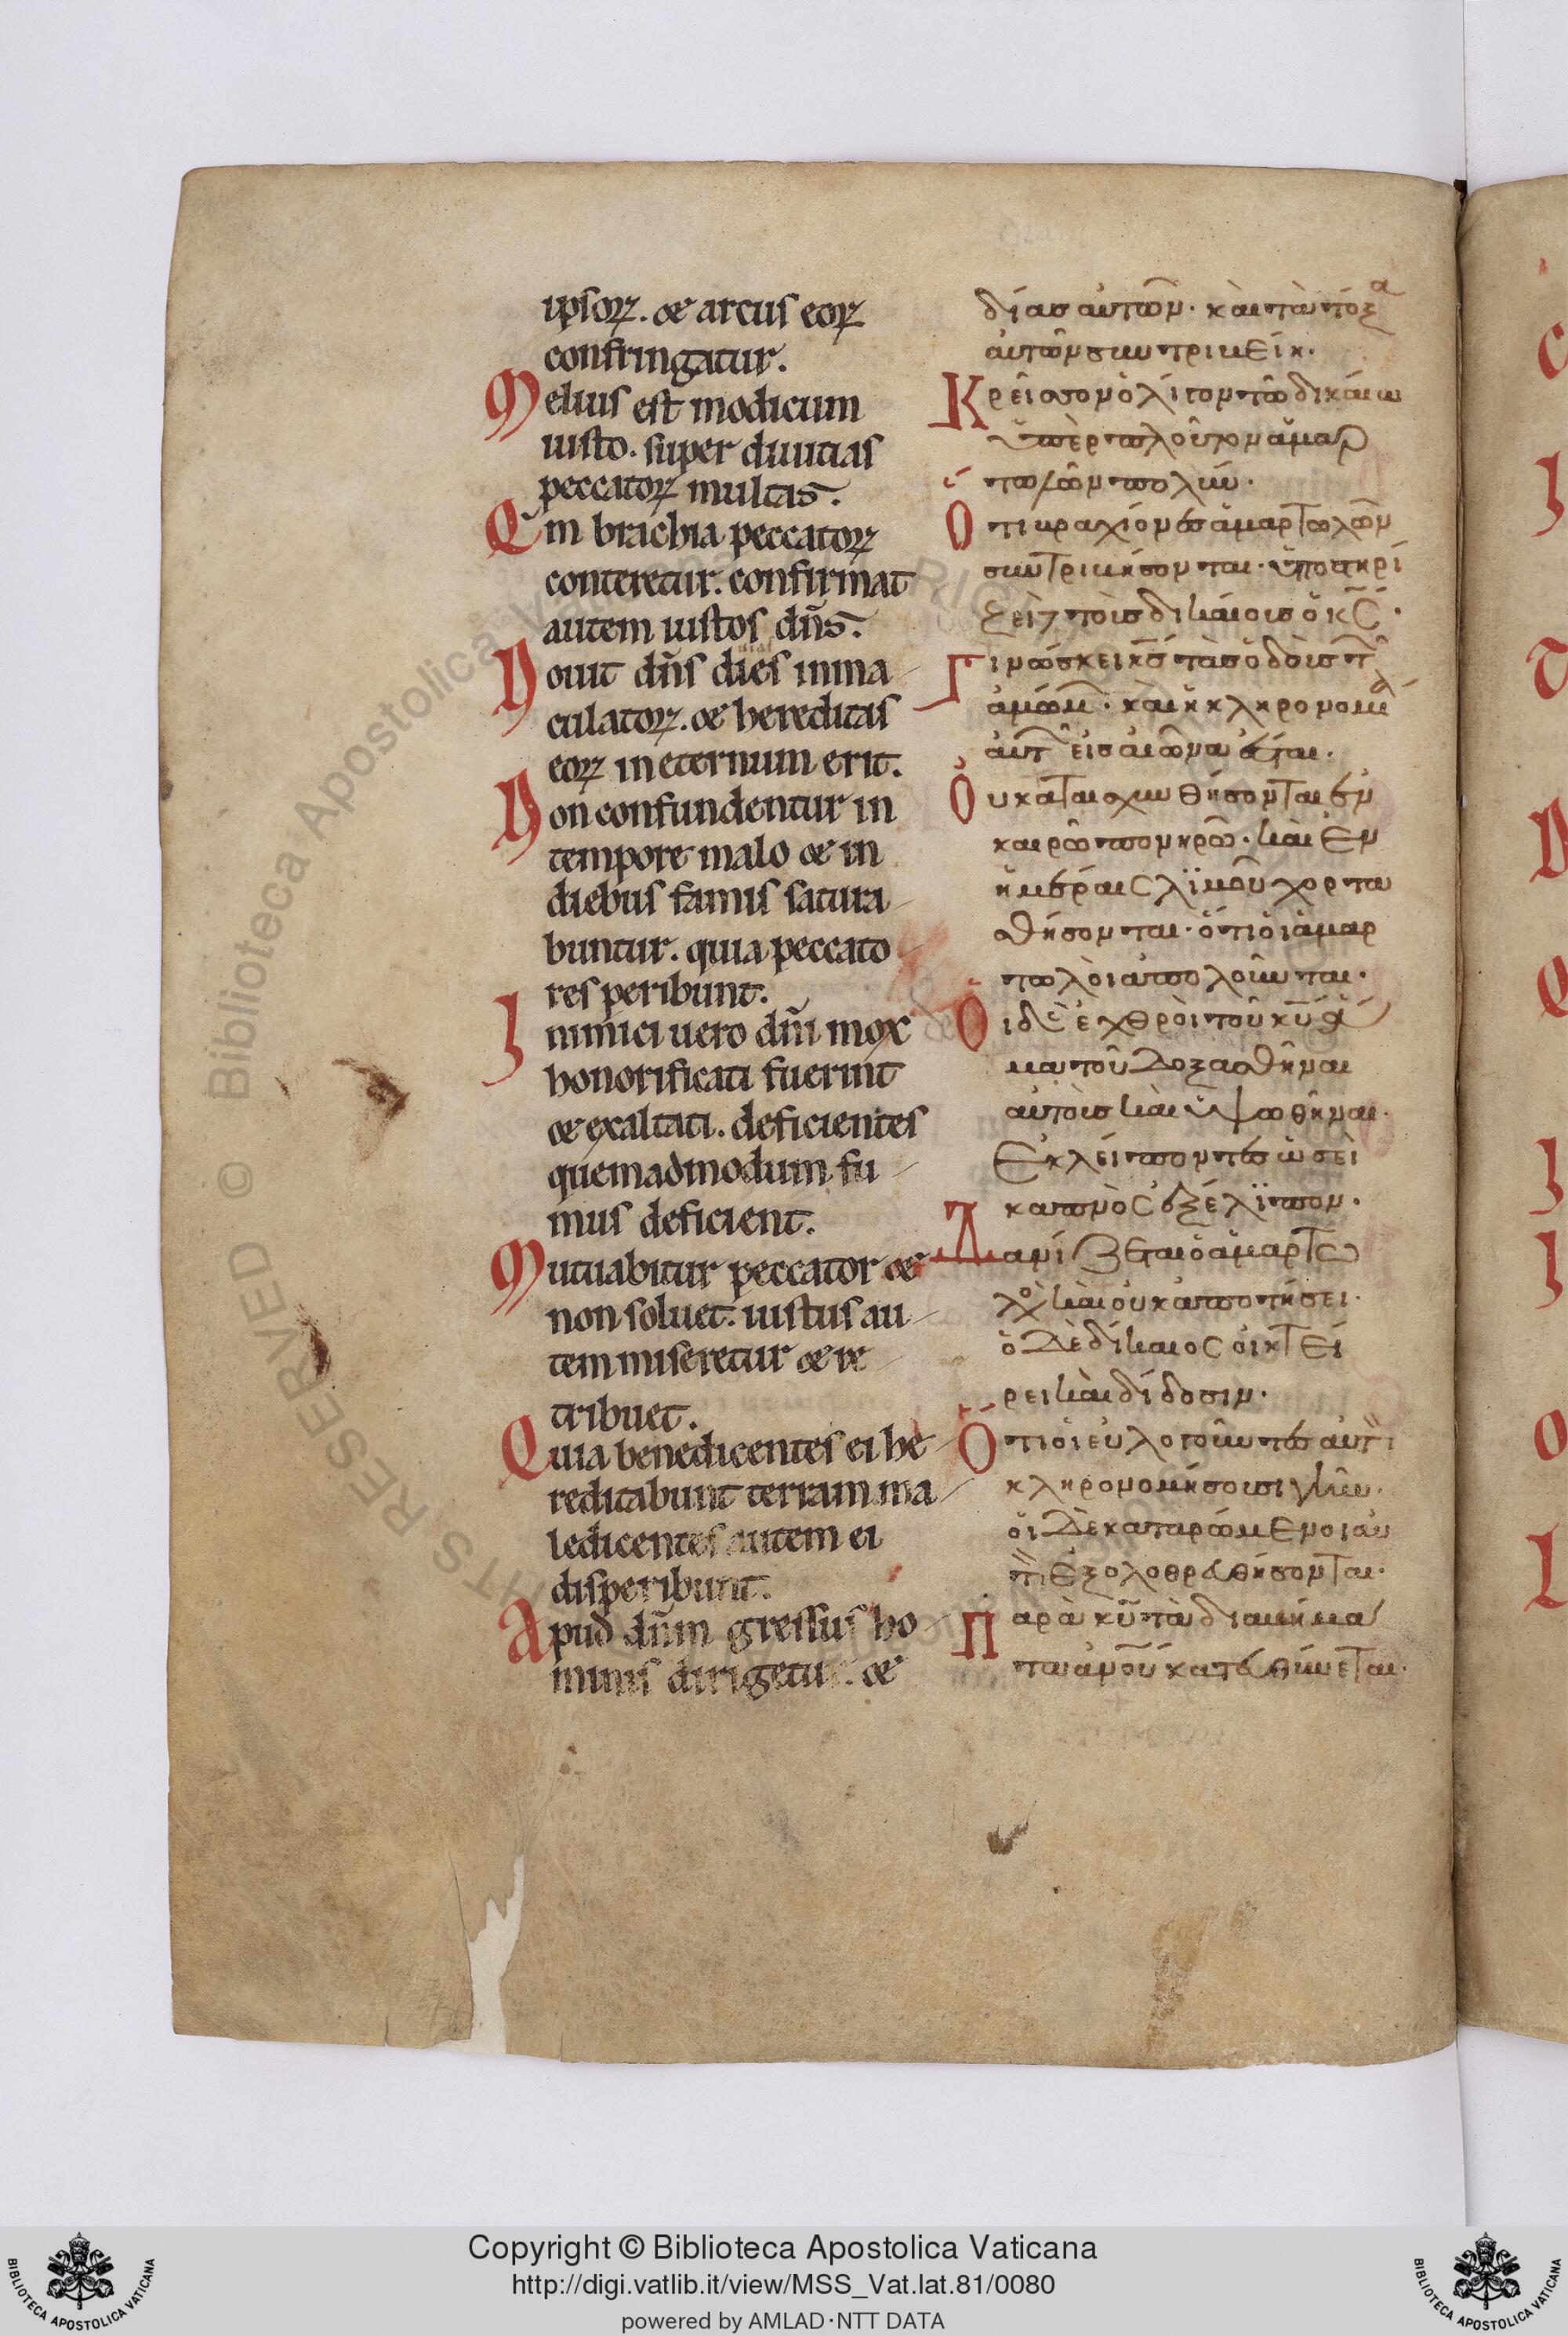 ipsoꝝ. & arcus eoꝝ
confringatur.
Melius est modicum
iusto. super diuitias
peccatoꝝ multas.
Qm̄ brachia peccatoꝝ
conteretur. confirmat
autem iustos dn̄s.
Nouit dn̄s dies inma
culatoꝝ. & hereditas
eoꝝ in eternum erit.
Non confundentur in
tempore malo & in
diebus famis satura
buntur. quia peccato
res peribunt.
Inimici uero dn̄i mox
honorificati fuerint
& exaltati. deficientes
quemadmodum fu
mus deficient.
Mutuabitur peccator &
non soluet. iustus au
tem miseretur & re
tribuet.
Quia benedicentes ei he
reditabunt terram. ma
ledicentes autem ei
disperibunt.
Apud dn̄m gressus ho
minis dirigetur. &
δίασ αὐτῶν. καὶ τὰ τόξα
αὐτῶν συντριβείη.
Κρεῖσον ὀλίγον τῶ δικαίω
ὑπὲρ πλοῦτον ἁμαρ
τωλῶν πολύν.
Ὅτι βραχίονεσ ἁμαρτωλῶν
συντριβήσονται. ὑποστηρί
ζει τοὺσ δικαίουσ ὁ κ̄ς̄.
Γινώσκει κ̄ς̄ τὰσ ὁδοὺσ τῶ
ἀμώμ. καὶ ἡ κληρονομία
αὐτ εἰσ αἰῶνα ἔσται.
Οὐ καταισχυνθήσονται ἐν
καιρῶ πονηρῶ. καὶ ἐν
ἡμέραις λϊμοῦ χορτα
σθήσονται. ὅτι οἱ ἁμαρ
τωλοὶ ἀπολοῦνται.
Οἱ δὲ ἐχθροὶ τοῦ κ̄ῡ ἅ
μα τοῦ δοξασθῆναι
αὐτοὺσ καὶ ὑψωθῆναι.
Ἐκλείποντεσ ὡσεὶ
καπνὸς ἐξέλϊπον.
Δανίζεται ὁ ἁμαρτω
λὸ καὶ οὐκ ἀποτήσει.
ὁ δὲ δίκαιος οἰκτεί
ρει καὶ δίδοσιν.
Ὅτι οἱ εὐλογοῦντεσ αὐτ
κληρονομήσουσι γῆν.
οἱ δὲ καταρώμενοι αὐ
τ ἐξολοθρευθήσονται.
Παρὰ κ̄ῡ τὰ διαβήμα
τα ἀν̄οῡ κατευθύνεται.
Copyright © Biblioteca Apostolica Vaticana
http://digi.vatlib.it/view/MSS_Vat.lat.81/0080
powered by AMLAD·NTT DATA
BIBLIOTECA APOSTOLICA VATICANA
BIBLIOTECA APOSTOLICA VATICANA